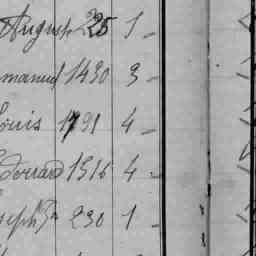 August 225 1
manuel 1430 3 -
ouis 1791 4 -
douard 1516 4 -
seph 230 1 -